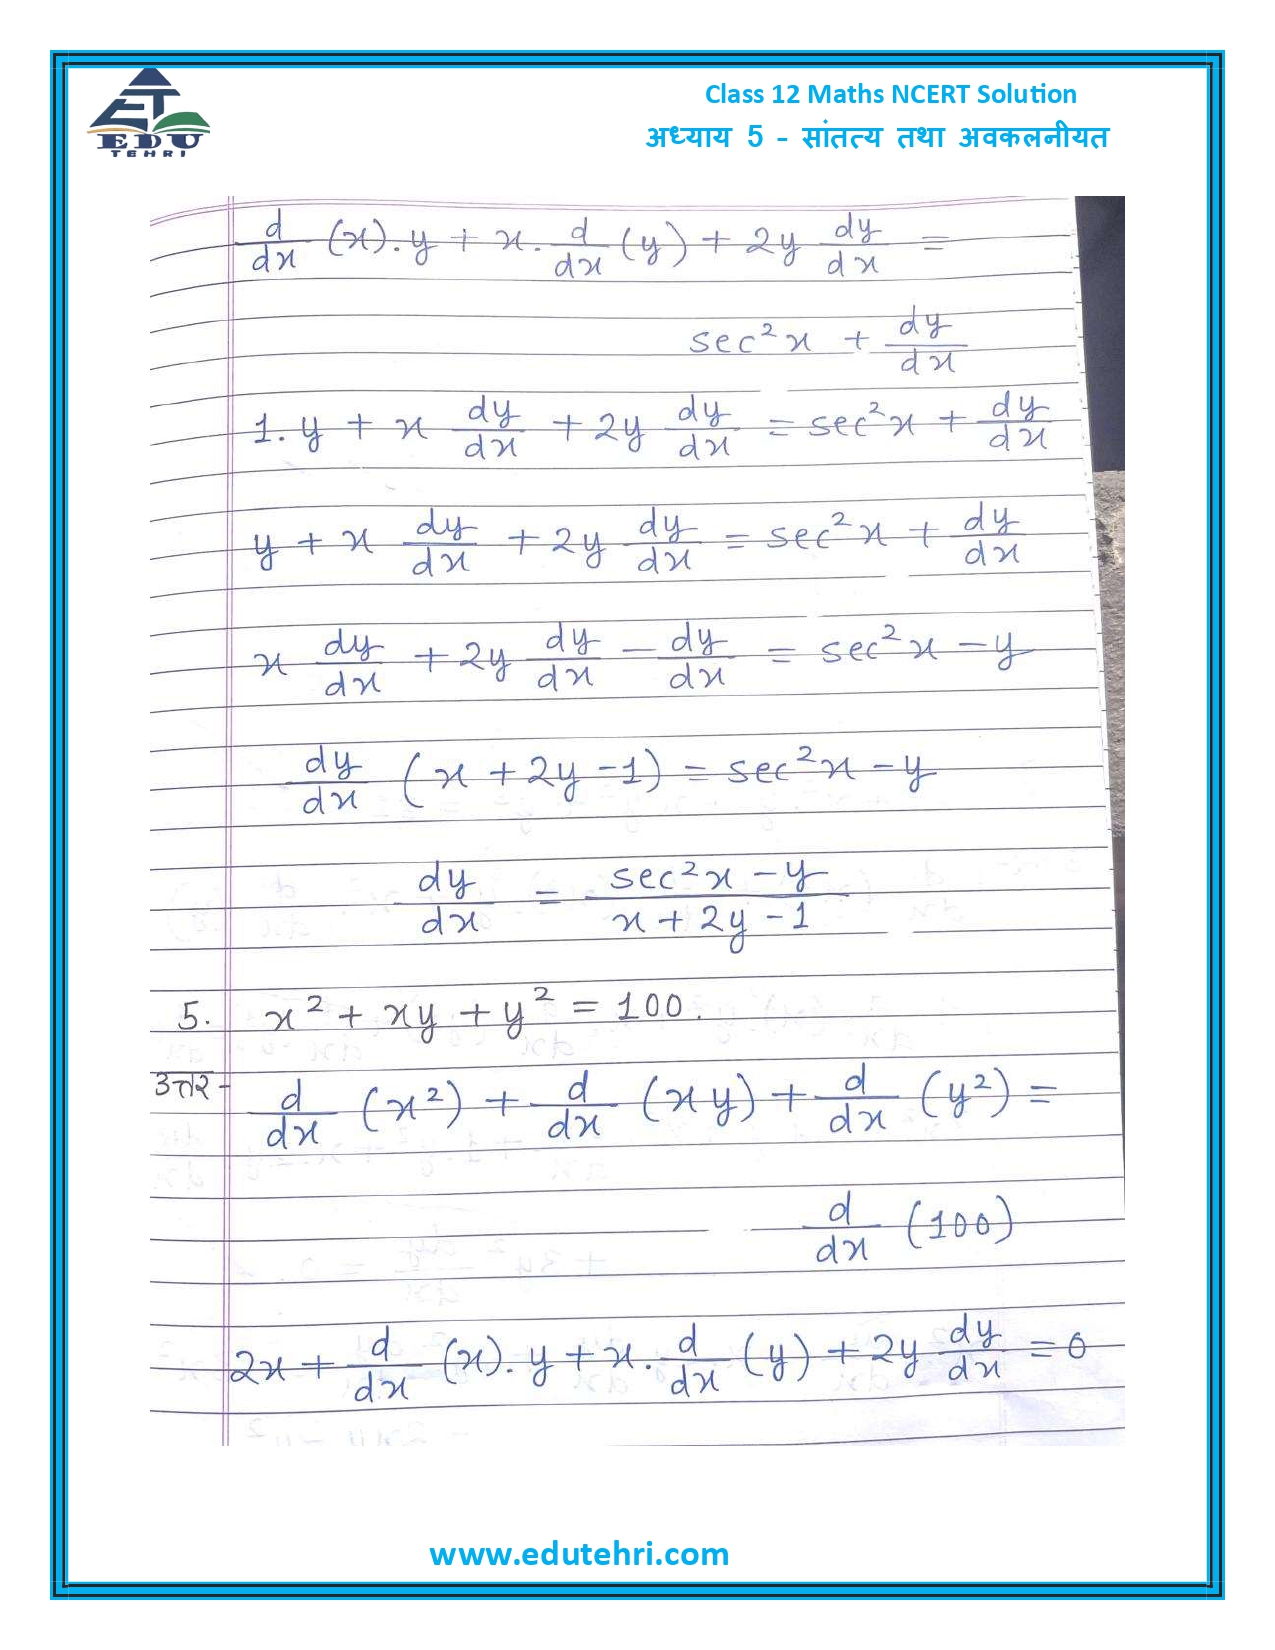 EDU
TEHRI
Class 12 Maths NCERT Solution
अध्याय 5 - सांतत्य तथा अवकलनीयत
d/dx (x).y + x.d/dx (y) + 2y dy/dx =
sec²x + dy/dx
1.y + x dy/dx + 2y dy/dx = sec²x + dy/dx
y + x dy/dx + 2y dy/dx = sec²x + dy/dx
x dy/dx + 2y dy/dx - dy/dx = sec²x - y
dy/dx (x + 2y - 1) = sec²x - y
dy/dx = (sec²x - y)/(x + 2y - 1)
5. x² + xy + y² = 100.
उत्तर- d/dx (x²) + d/dx (xy) + d/dx (y²) =
d/dx (100)
2x + d/dx (x).y + x.d/dx (y) + 2y dy/dx = 0
www.edutehri.com